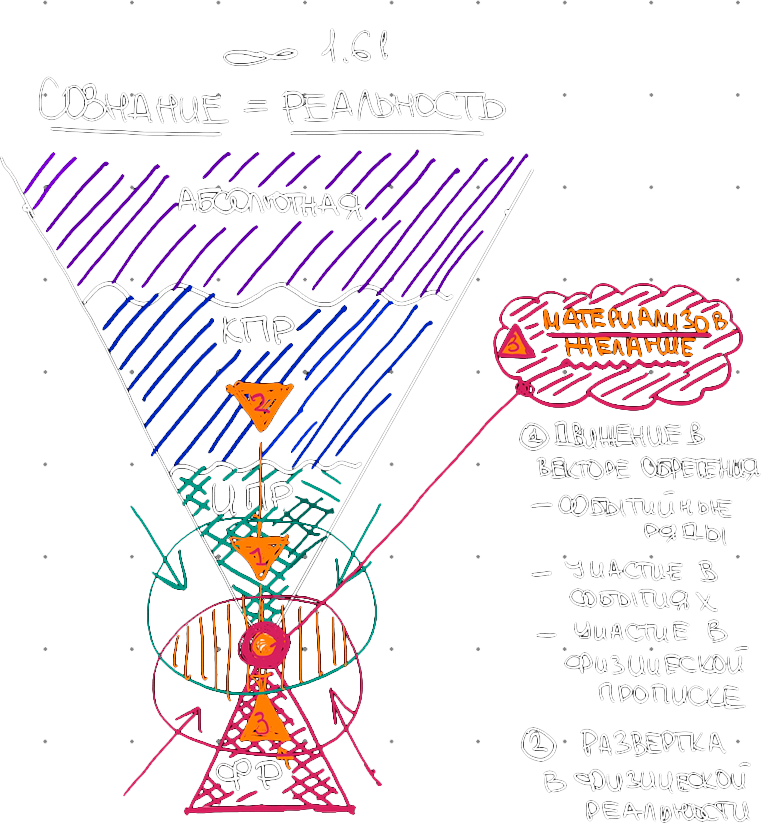 ∞ 1.61
СОЗНАНИЕ = РЕАЛЬНОСТЬ
АБСОЛЮТНАЯ
КПР
2
ИПР
1
3
ФР
3
МАТЕРИАЛИЗОВ
ЖЕЛАНИЕ
① ДВИЖЕНИЕ В
ВЕКТОРЕ ОБРЕТЕНИЯ
— СОБЫТИЙНЫЕ
РЯДЫ
— УЧАСТИЕ В
СОБЫТИЯХ
— УЧАСТИЕ В
ФИЗИЧЕСКОЙ
ПРОПИСКЕ
② РАЗВЕРТКА
В ФИЗИЧЕСКОЙ
РЕАЛЬНОСТИ